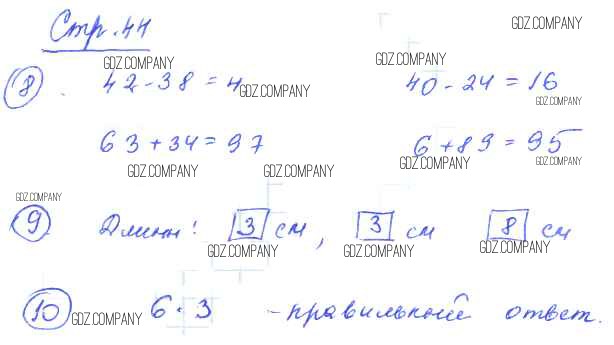 Стр. 44
GDZ.COMPANY
GDZ.COMPANY GDZ.COMPANY
8. 42-38=4 40-24=16
GDZ.COMPANY GDZ.COMPANY
63+34=97 6+89=95
GDZ.COMPANY GDZ.COMPANY GDZ.COMPANY GDZ.COMPANY
GDZ.COMPANY
9 Длины: 3 см, 3 см 8 см
GDZ.COMPANY GDZ.COMPANY GDZ.COMPANY
10 6·3 - правильный ответ.
GDZ.COMPANY